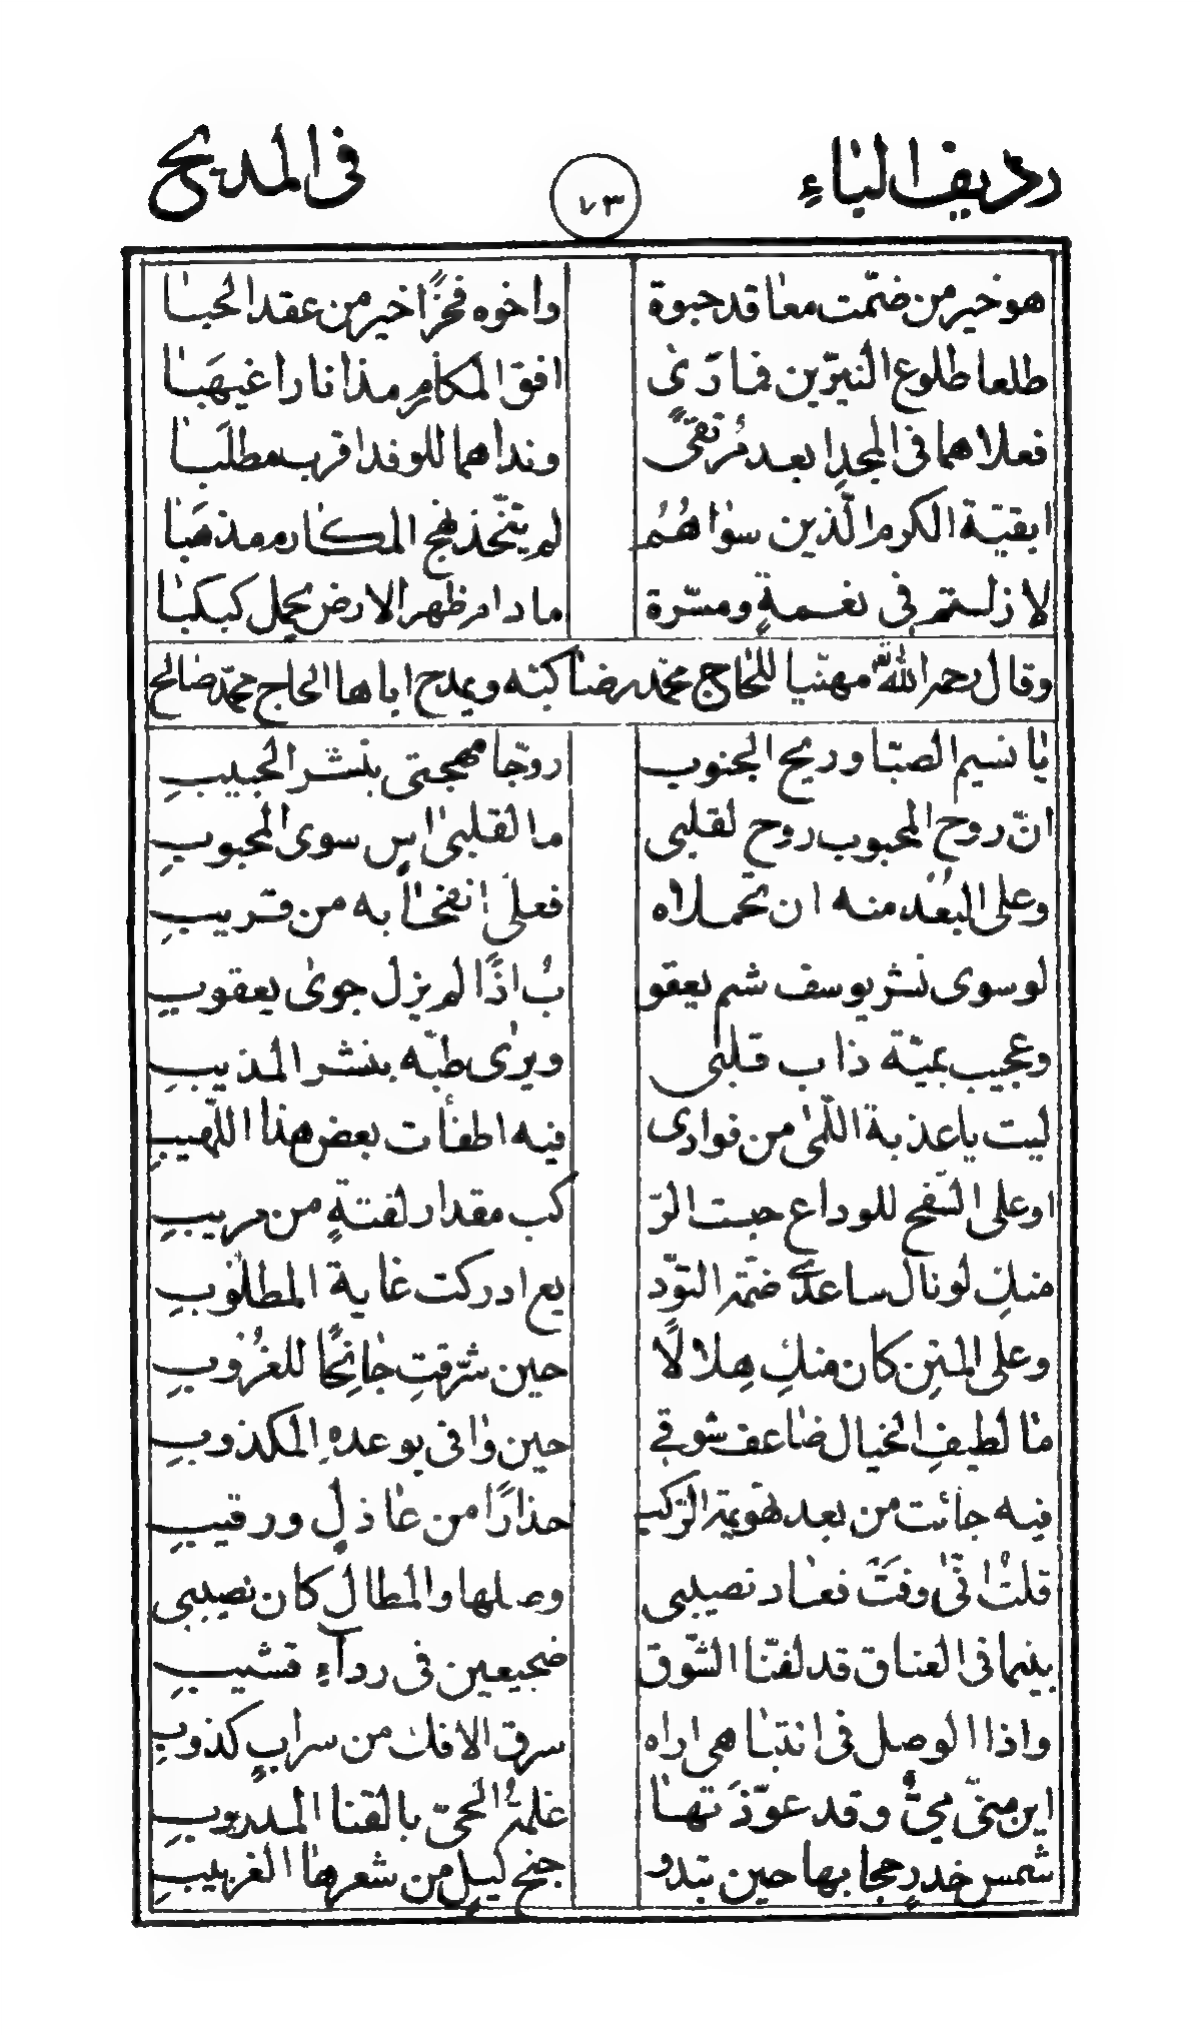 رديف الباء ٧٣ في المديح
هو خير من ضمّت معاقد حبوة واخوه فخرًا خير من عقد الحبا
طلعا طلوع النيّرين فما رَئ افق المكارم مذ انارا غيهبا
فعلاهما في المجد ابعد مُرتقىً ونداهما للوفد اقرب مطلَبا
ابقيّة الكرم الّذين سواهُمُ لم يتّخذ نهج المكارم مذهبا
لا زلتم في نعمةٍ ومسّرة ما دام ظهر الارض يحمل كبكبا
وقال رحمه اللّٰه مهنّيا للحاج محمّد رضا كبّه ويمدح اباها الحاج محمّد صالح
يا نسيم الصبّا وريح الجنوب روّحا مهجتي بنشر الحبيبِ
انّ روح المحبوب روح لقلبي ما لقلبي اسٍ سوى المحبوبِ
وعلى البُعُد منه ان تحملاه فعلىّ انفحا به من قريبِ
لو سوى نشر يوسف شم يعقو بُ اذًا لم يزل جوى يعقوبِ
وعجيب بميّة ذاب قلبى ويرى طبّه بنشر المذيبِ
ليت يا عذبة اللّمى من فوادى فيه اطفأت بعض هذا اللّهيبِ
او على السّفح للوداع حبت الرّ كب مقدار لفتةٍ من مريبِ
منكِ لو نال ساعدىّ ضمّة التوّد يع ادركت غاية المطلوبِ
وعلى المتنِ كان منكِ هلالًا حين شرّقتِ جانِحًا للغُروبِ
ما لطيفِ الخيال ضاعف شوقي حين وافى بوعدهِ المكذوبِ
فيه جائت من بعد تهويمة الرّكب حذارًا من عاذلٍ ورقيبِ
قلتُ انّى وفَتَ فعاد نصيبى وصلها والمطال كان نصيبى
بينما في العناق قد لفّنا الشّوق ضجيعين في رداءِ قشيبِ
واذا الوصل في انتباهى اراه سرق الافك من سرابٍ كذوبِ
اين منىّ مىٌّ وقد عوّذَتها غلمةُ الحيّ بالقنا المدروبِ
شمس خدرٍ حجابها حين تبدو جنح ليلٍ من شعرها الغربيبِ